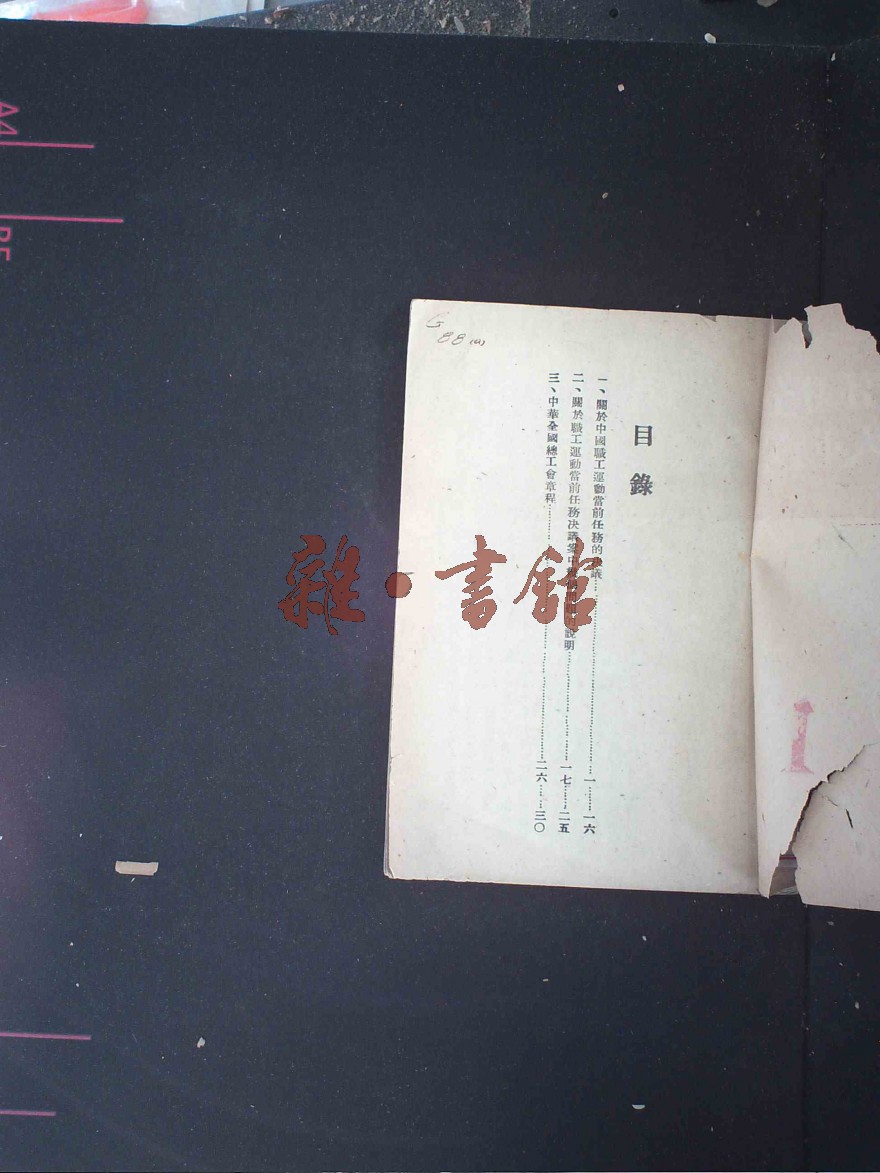 目錄
一、關於中國職工運動當前任務的決議……一……一六
二、關於職工運動當前任務決議案中……說明……一七……二五
三、中華全國總工會章程……二六……三〇
G
88(a)
雜·書館
1
A4
B5